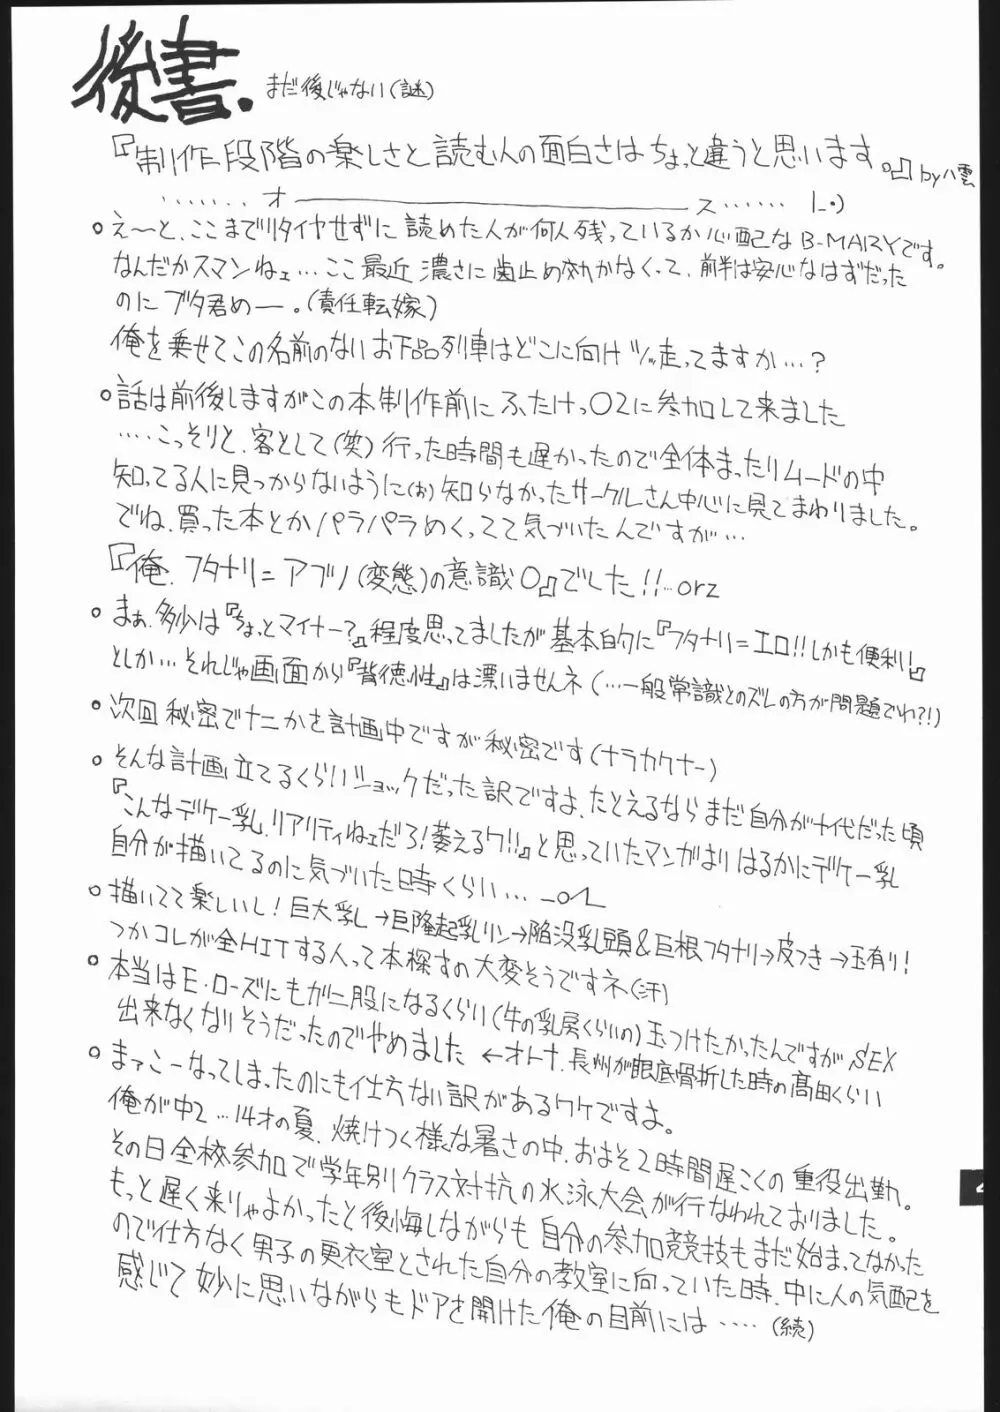 後書.
まだ後じゃない(謎)
『制作段階の楽しさと読む人の面白さはちょっと違うと思います。』by八雲
・・・・・・・オ――――――――ス・・・・・・
。え〜と、ここまでリタイヤせずに読めた人が何人残っているか心配なB-MARYです。
なんだかスマンねェ…ここ最近濃さに歯止め効かなくって、前半は安心なはずだった
のにブタ君めー。(責任転嫁)
俺を乗せてこの名前のないお下品列車はどこに向けツッ走ってますか…?
。話は前後しますがこの本制作前にふたけっ02に参加して来ました
‥‥こっそりと、客として(笑)行った時間も遅かったので全体まったりムードの中
知ってる人に見っからないように(お)知らなかったサークルさん中心に見てまわりました。
でね、買った本とかパラパラめくってて気づいたんですが…
『俺、フタナリ=アブノ(変態)の意識0』でした!!…orz
。まぁ、多少は『ちょっとマイナー?』程度思ってましたが基本的に『フタナリ=エロ!!しかも便利!』
としか…それじゃ画面から『背徳性』は漂いませんネ(…一般常識とのズレの方が問題でわ?!)
。次回秘密でナニかを計画中ですが秘密です(ナラカクナー)
。そんな計画立てるくらいショックだった訳ですよ、たとえるならまだ自分が十代だった頃
『こんなデケー乳、リアリティねェだろ!萎えるワ!!』と思っていたマンガよりはるかにデケー乳
自分が描いてるのに気づいた時くらい…
。描いてて楽しいし!巨大乳→巨隆起乳リン→陥没乳頭&巨根フタナリ→皮つき→玉有り!
つかコレが全HITする人って本探すの大変そうですネ(汗)
。本当はE・ローズにもが二股になるくらい(牛の乳房くらいの)玉つけたかったんですがSEX
出来なくなりそうだったのでやめました ←オトナ、長州が眼底骨折した時の髙田くらい
。まっこーなってしまったのにも仕方ない訳があるワケですよ。
俺が中2…14才の夏、焼けつく様な暑さの中、およそ2時間遅こくの重役出勤。
その日全校参加で学年別クラス対抗の水泳大会が行なわれておりました。
もっと遅く来りゃよかったと後悔しながらも自分の参加競技もまだ始まってなかった
ので仕方なく男子の更衣室とされた自分の教室に向っていた時、中に人の気配を
感じて妙に思いながらもドアを開けた俺の目前には‥‥(続)